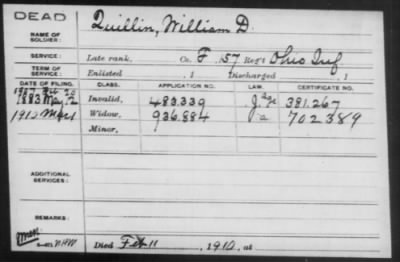 DEAD
NAME OF SOLDIER: Quillin, William D.
SERVICE: Late rank, Co. F, 157 Reg't Ohio Inf
TERM OF SERVICE: Enlisted , 1 Discharged , 1
DATE OF FILING. CLASS. APPLICATION NO. LAW. CERTIFICATE NO.
1907
1883 May 2 Invalid, 483.339 381.267
1910 Mar 1 Widow, 936,884 702389
Minor,
ADDITIONAL SERVICES:
REMARKS:
Died Feb 11, 1910, at